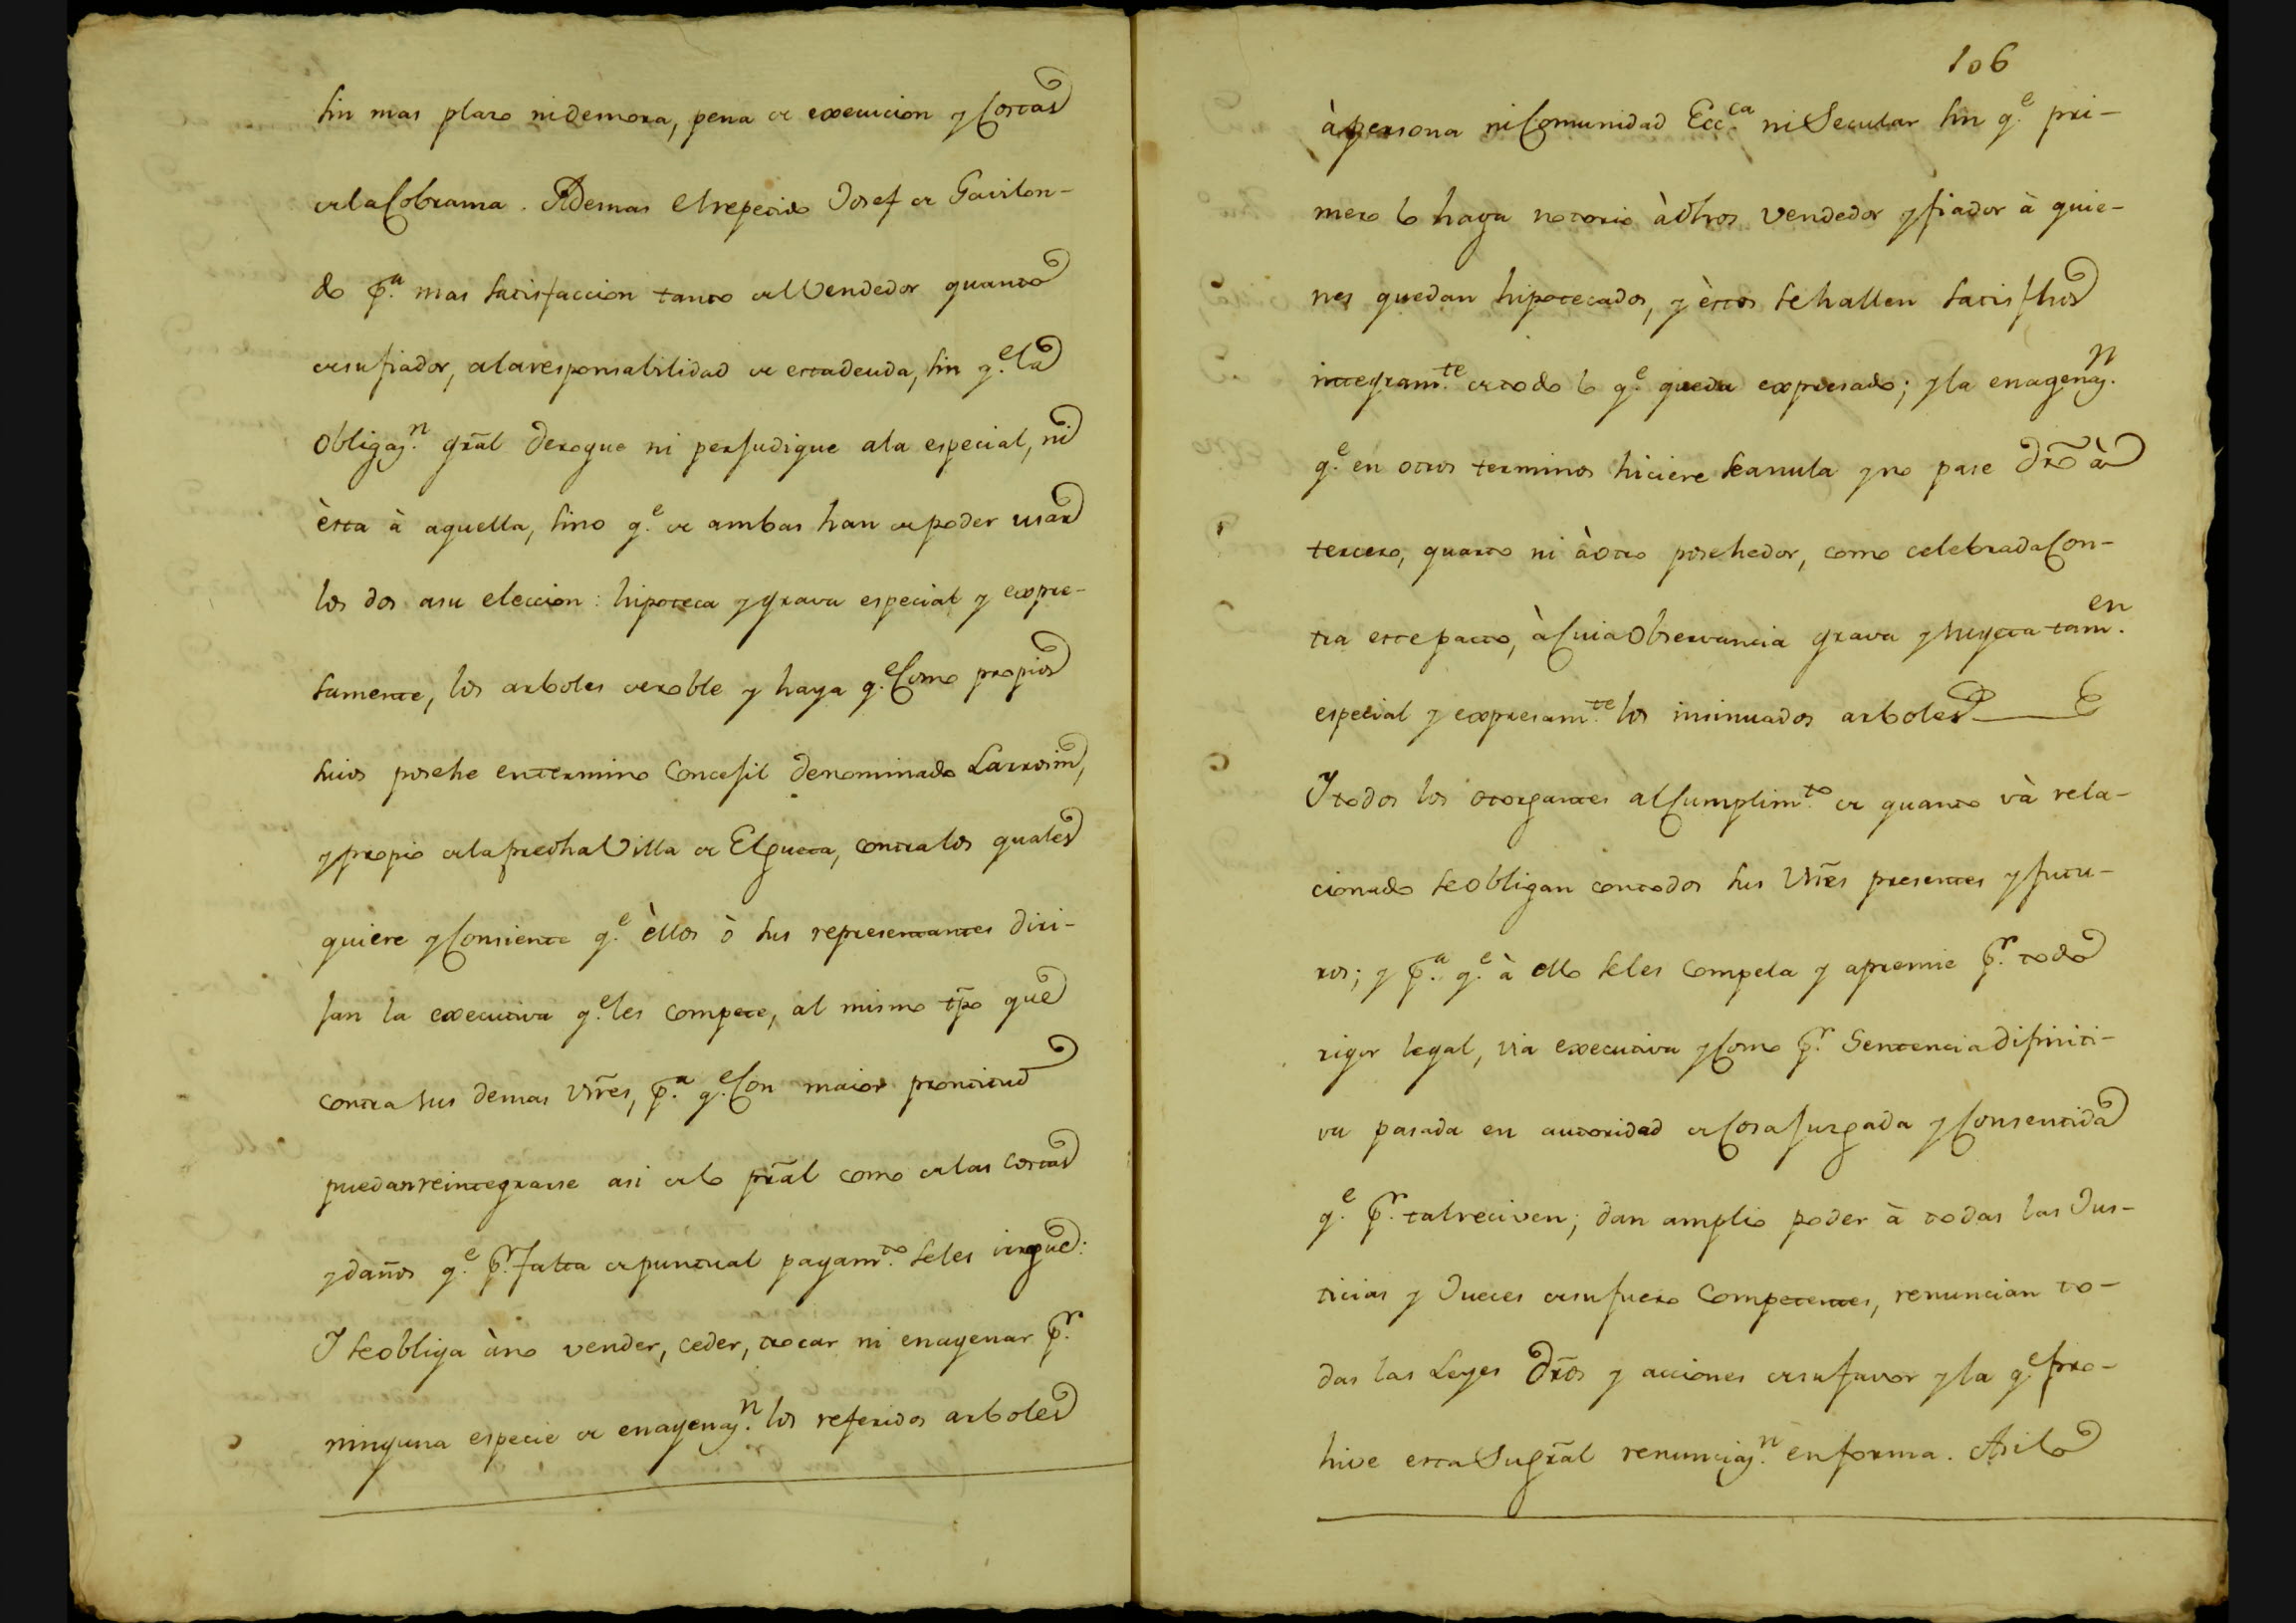 sin mas plazo ni demora, pena de execucion y Costas
de la Cobranza. Ademas el repetido Josef de Gavilon-
do p.ª mas satisfaccion tanto del Vendedor quanto
de su fiador, a la responsabilidad de esta deuda, sin q.e la
Obligaz.n grâl derogue ni perjudique a la especial, ni
èsta à aquella, sino q.e de ambas han de poder usar
los dos a su eleccion: hipoteca y grava especial y expre-
samente, los arboles de roble y haya q.e Como propios
suios posehe en termino Concejil denominado Larrosin,
y propio de la predha Villa de Elgueta, contra los quales
quiere y Consiente q.e èllos ò sus representantes diri-
jan la executiva q.e les compete, al mismo tp̃o que
contra sus demas vñes, p.ª q.e Con maior prontitud
puedan reintegrarse asi de lo prãl como de las costas
y daños q.e p.r falta de puntual pagam.to se les irrogue:
Y se obliga à no vender, ceder, trocar ni enagenar p.r
ninguna especie de enagenaz.n los referidos arboles
106
à persona ni Comunidad Ecc.ca ni Secular sin q.e pri-
mero lo haga notorio à dhos vendedor y fiador à quie-
nes quedan hipotecados, y èstos se hallen satisfhos
integram.te de todo lo q.e queda expresado; y la enagenaz.n
q.e en otros terminos hiciere sea nula y no pase dr̃o à
tercero, quarto ni à otro posehedor, como celebrada Con-
tra este pacto, à Cuia Observancia grava y sugeta tam.en
especial y expresam.te los insinuados arboles
Y todos los otorgantes al Cumplim.to de quanto và rela-
cionado se obligan con todos sus Vñes presentes y futu-
ros; y p.ª q.e à ello se les compela y apremie p.r todo
rigor legal, via executiva y Como p.r Sentencia difiniti-
va pasada en autoridad de Cosa Juzgada y Consentida
q.e p.r tal reciven; dan amplio poder à todas las Jus-
ticias y Jueces de su fuero Competentes, renuncian to-
das las Leyes dr̃os y acciones de su favor y la q.e pro-
hive esta Su grãl renunciaz.n en forma. Asi lo